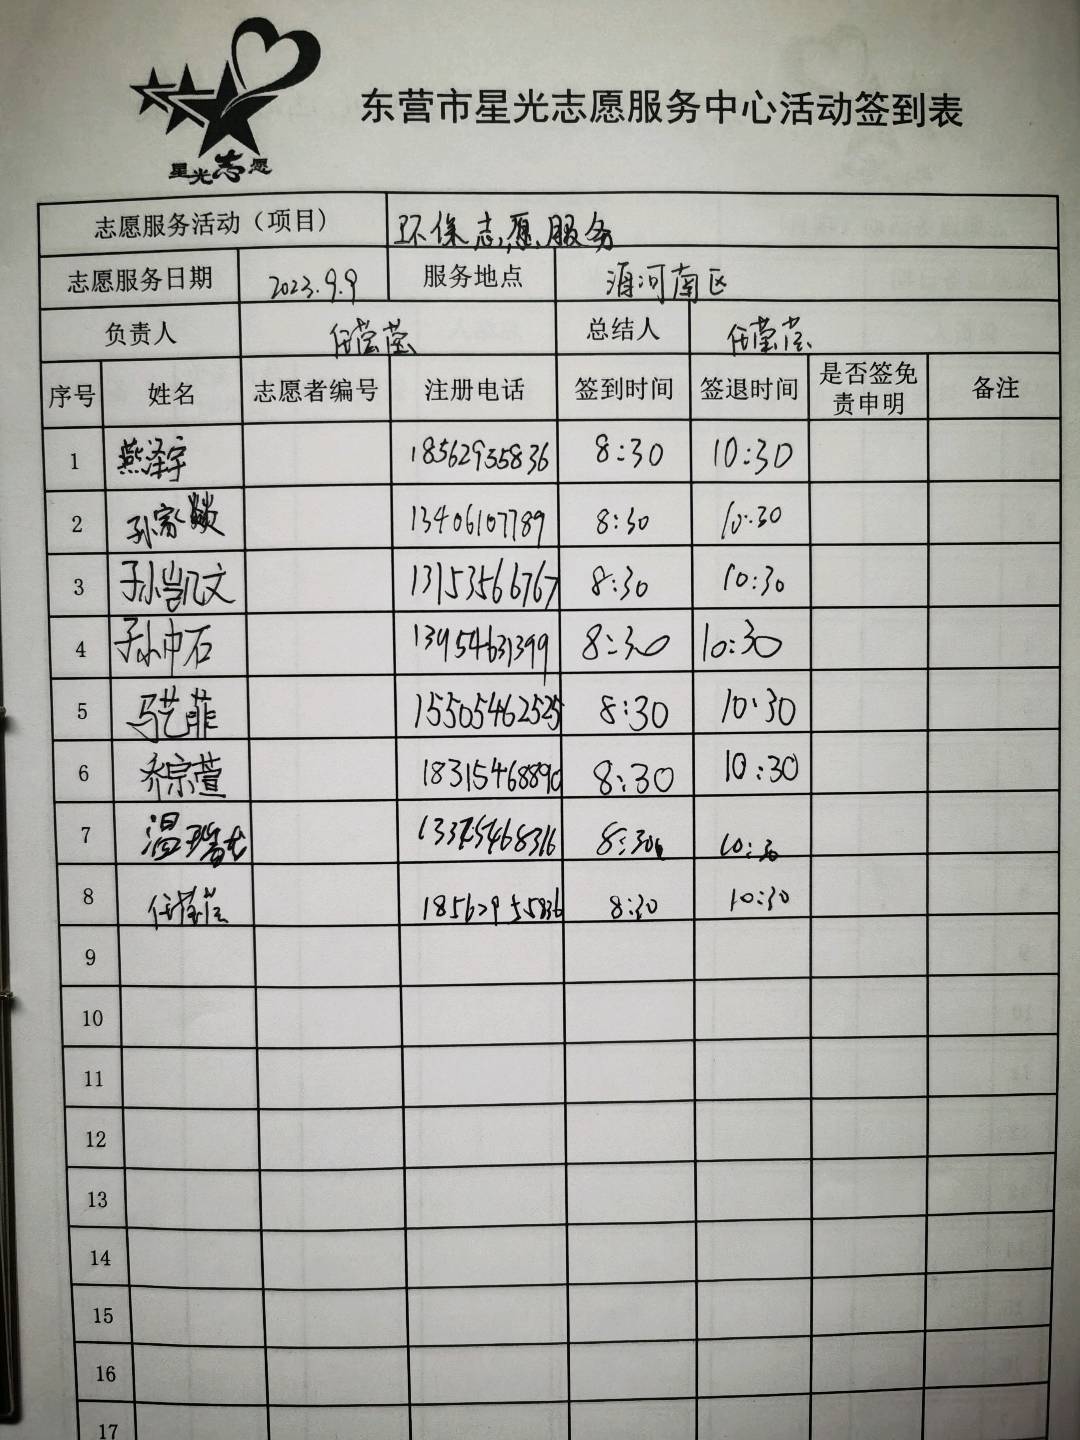 星光志愿
东营市星光志愿服务中心活动签到表
志愿服务活动（项目） 环保志愿服务
志愿服务日期 2023.9.9 服务地点 河南区
负责人 任莹莹 总结人 任莹莹
序号 姓名 志愿者编号 注册电话 签到时间 签退时间 是否签免责申明 备注
1 燕泽宇 18562955836 8:30 10:30
2 孙家燚 13406107789 8:30 10:30
3 孙凯文 13153566767 8:30 10:30
4 孙中石 13954631399 8:30 10:30
5 马艺菲 15505462525 8:30 10:30
6 乔宗萱 18315468890 8:30 10:30
7 温瑞 8:30 10:30
8 任莹莹 18562955836 8:30 10:30
9
10
11
12
13
14
15
16
17